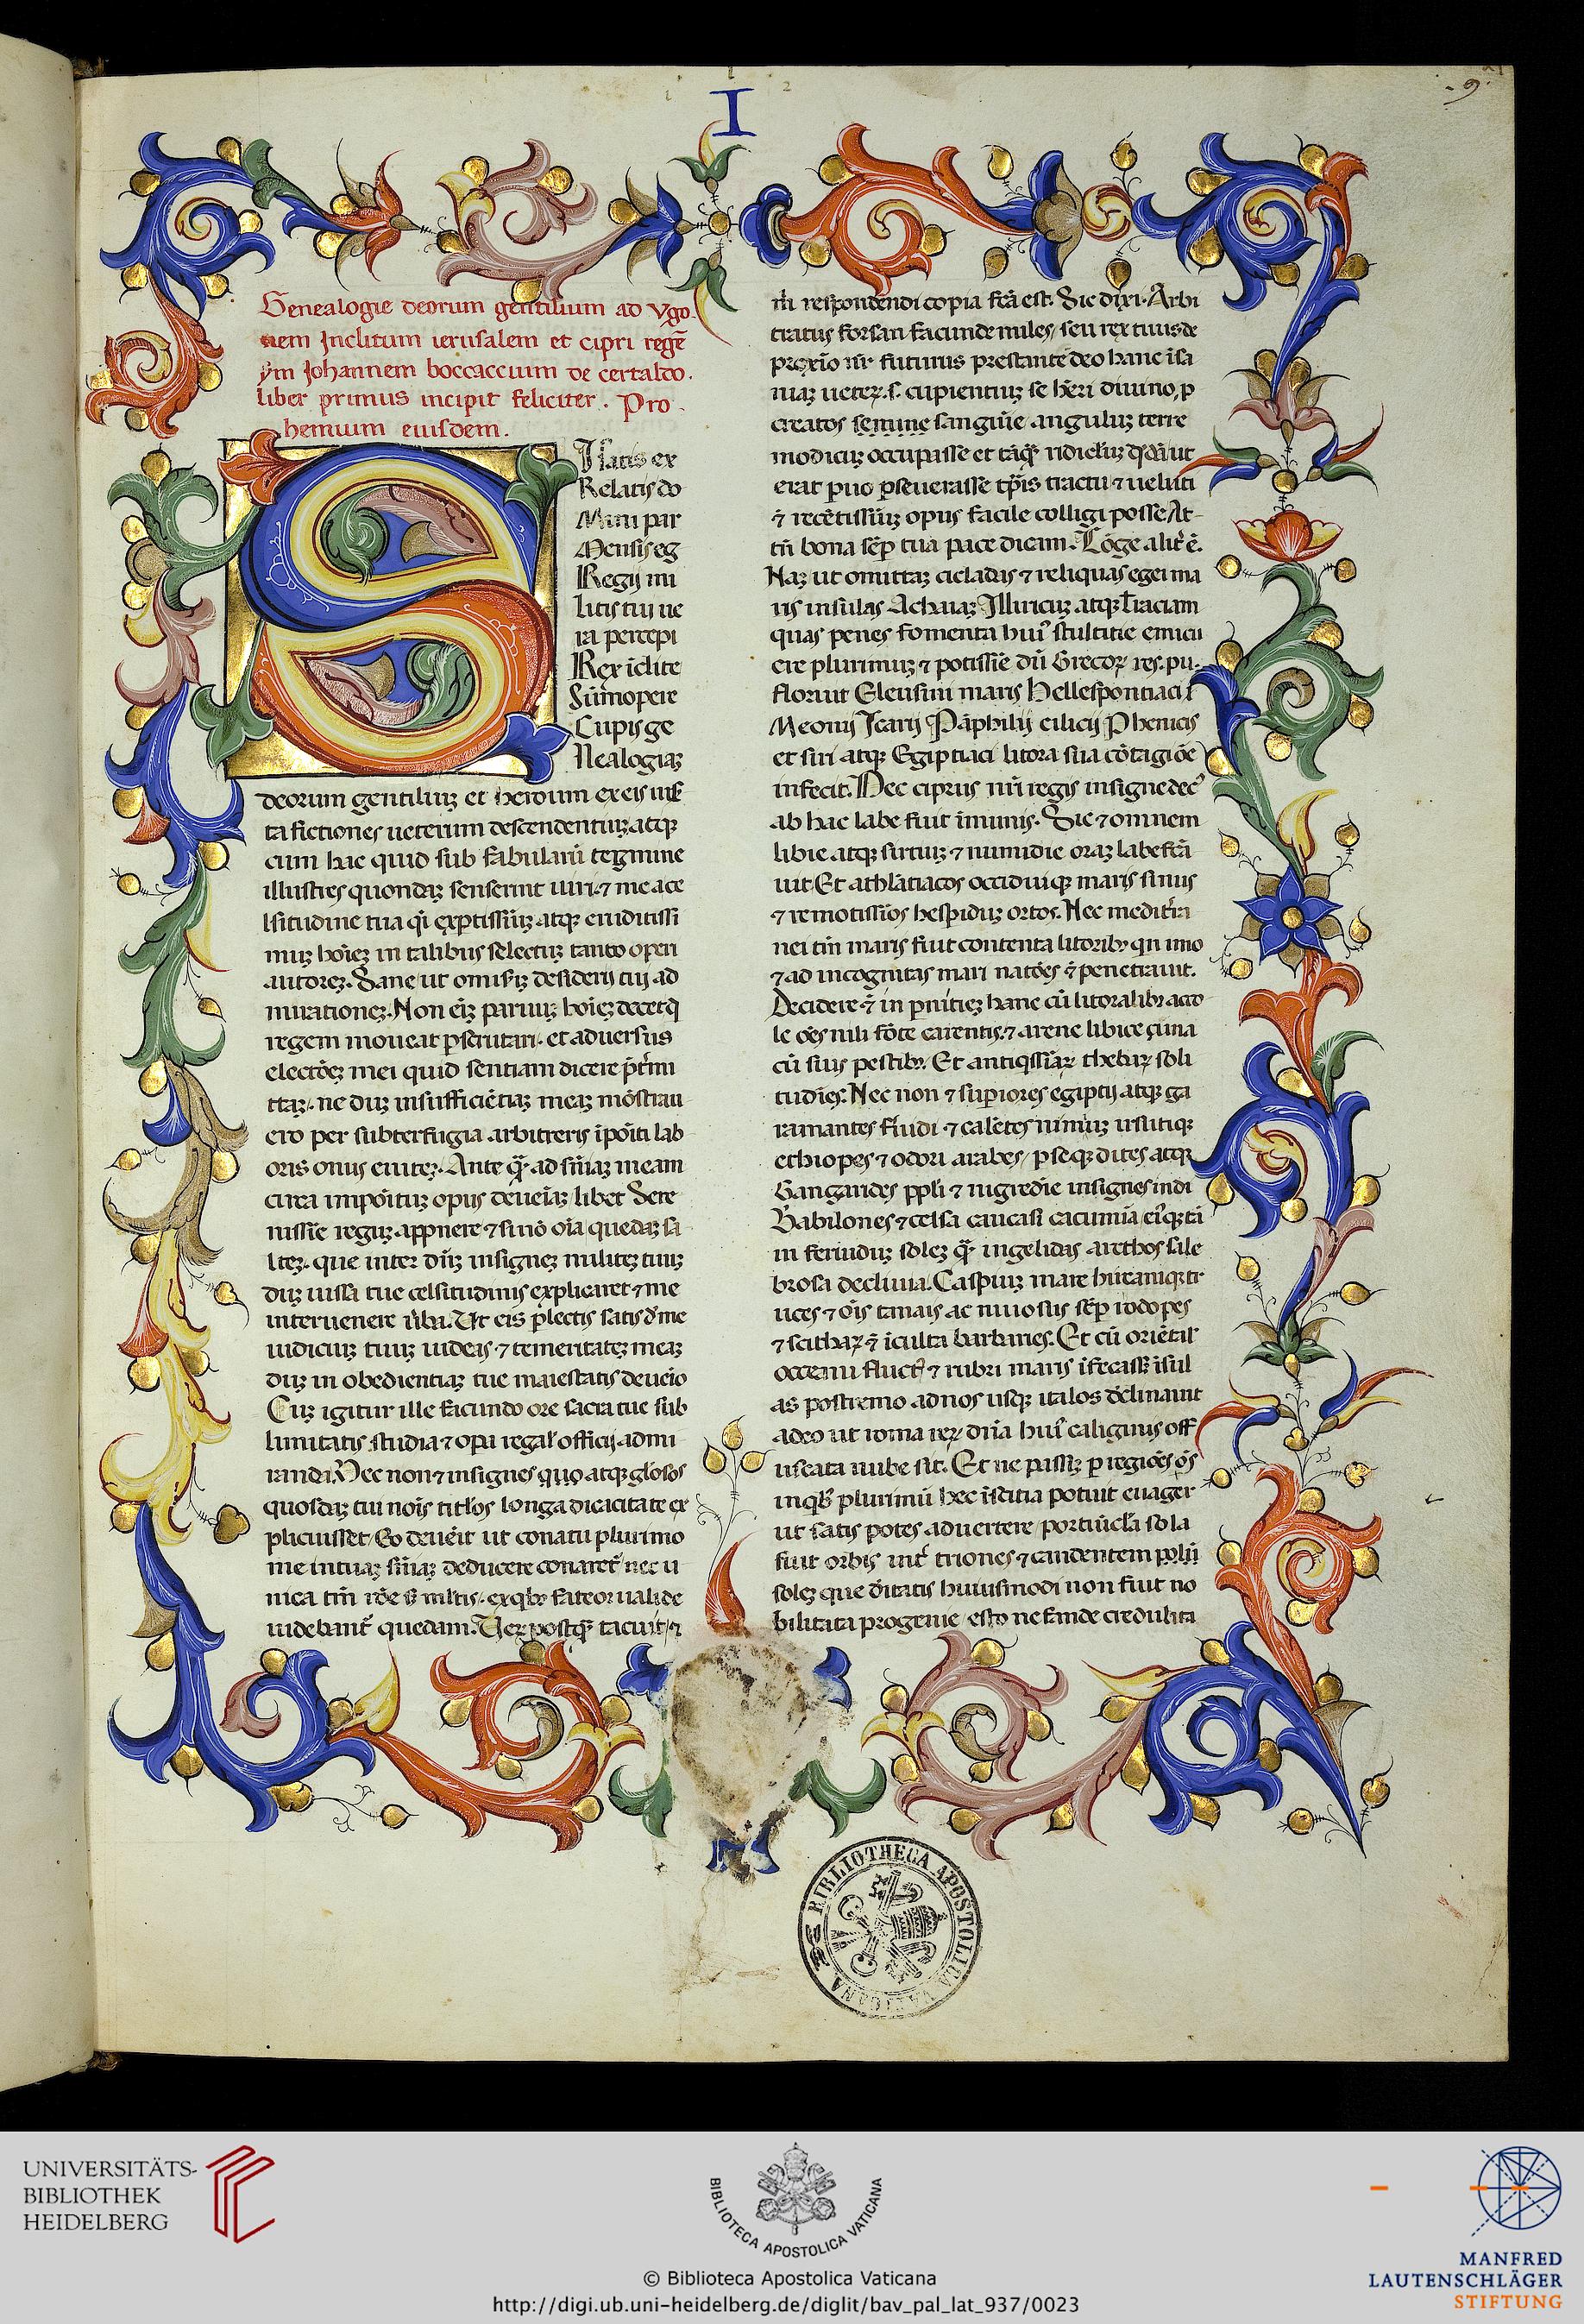 I
9
Genealogie deorum gentilium ad Vgo
nem Inclitum ierusalem et cipri regē
ꝑ Johannem boccaccium de certaldo.
liber primus incipit feliciter. Pro
hemium eiusdem.
I satis ex
Relatis do
Mini par
Mensis eg
Regij mi
litis tui ue
ra percepi
Rex iclite
Sūmopere
Cupis ge
Nealogiaȝ
deorum gentiliuȝ et heroum ex eis iux
ta fictiones ueterum descendentiuȝ atqȝ
cum hac quid sub fabularū tegmine
illustres quondaȝ senserint uiri ⁊ me ace
lsitudine tua qi expertissiūȝ atqȝ eruditissi
muȝ hoīeȝ in talibus selectuȝ tanto operi
autoreȝ. Sane ut omisiȝ desiderij tuj ad
mirationeȝ. Non eīȝ paruuȝ hoīeȝ decet q̄
regem moueat ꝑscrutari. et aduersus
electōeȝ mei quid sentiam dicere p̄t̄mi
ttaȝ. ne duȝ insufficiētiaȝ meaȝ mōstrau
ero per subterfugia arbitreris īpōiti lab
oris onus euiteȝ. Ante q̄ꝫ ad sn̄iaȝ meam
circa impoītuȝ opus deueīaȝ libet Sere
nissīe reguȝ appnere ⁊ si nō oīa quedaȝ sa
lteȝ. que inter d̄uȝ insigneȝ militeȝ tuuȝ
duȝ iussa tue celsitudinis explicaret ⁊ me
interuenere ūba. Ut eis ꝑlectis satis ⁊ me
iudiciuȝ tuuȝ uideas ⁊ temeritateȝ meaȝ
duȝ in obedientiaȝ tue maiestatis deueīo
Cuȝ igitur ille facundo ore sacra tue sub
limitatis studia ⁊ opa regal officij admi
randa Nec non ⁊ insignes quo atqȝ gl̄osos
quosdaȝ tui noīs titl̄os longa dicacitate ex
plicuisset. Eo deuēit ut conatu plurimo
me in tuaȝ sn̄iaȝ deducere conaret̄ nec u
nica tm̄ rōe ⁊ mltis. ex qbȝ fateor ualide
uidebant̄ quedam. Ueȝ postq̄ꝫ tacuit ⁊
m̄ respondendi copia fcā est. Sic dixi. Arbi
tratus forsan facunde miles, seu rex tuus de
proxīo nr̄ futurus prestante deo hanc īsa
niaȝ ueteꝝ. s. cupientiuȝ se h̄eri diuino, ꝓ
creatos semine sanguīe anguluȝ terre
modicuȝ occupasse et tāqȝ ridiclūȝ qddā ut
erat ꝑuo ꝑseuerasse tꝑis tractu ⁊ ueluti
⁊ recētissiūȝ opus facile colligi posse At-
tn̄ bona sēꝑ tua pace dicam. Lōge alit̄ ē.
Naȝ ut omittaȝ cicladas ⁊ reliquas egei ma
ris insulas Achaiaȝ Illiricuȝ atqȝ Traciam
quas penes fomenta hui' stultitie emicu
ere plurimuȝ ⁊ potissīe dū Grecoꝝ res. pu.
floruit Eleusini maris Hellespontiaci
Meonij Icarij Pāphilij cilicij Phenicis
et siri atqȝ Egiptiaci litora sua cōtagiōe
infecit. Nec ciprus nr̄i regis insigne dec'
ab hac labe fuit īmunis. Sic ⁊ omnem
libie atqȝ sirtiuȝ ⁊ numidie oraȝ labefcā
uit Et athlātiacos occiduiqȝ maris sinus
⁊ remotissīos hesꝑiduȝ ortos. Nec meditr̄a
nei tm̄ maris fuit contenta litoribȝ qn imo
⁊ ad incognitas mari natōes ⁊ penetrauit.
Decidere ⁊ in ꝑnitieȝ hanc cū litoralibȝ acco
le oēs nili fōte carentis ⁊ arene libice cuna
cū suis pestibȝ. Et antiqssiāꝝ thebaꝝ soli
tudīes. Nec non ⁊ supiores egiptij atqȝ ga
ramantes fluidi ⁊ calētes nimiuȝ irsutiqȝ
ethiopes ⁊ odori arabes, ꝑseqȝ dites atqȝ
Gangarides ꝑpl̄i ⁊ nigredīe insignes indi
Babilones ⁊ celsa caucasi cacumīa ei'qȝ tā
in feruiduȝ soleȝ q̄ꝫ in gelidas arcthos sale
brosa decliuia. Caspiuȝ mare hircaniqȝ tr
uces ⁊ oīs tanais ac niuosus sēꝑ rodopes
⁊ scithaꝝ ⁊ īculta barbaries. Et cū oriētal'
occeani fluct' ⁊ rubri maris īfecassȝ īsul
as postremo ad nos usqȝ italos d̄clinauit
adeo ut roma reꝝ dn̄a hui' caliginis off
uscata nube sit. Et ne passiȝ ꝑ regiōes oēs
inqb' plurimū hec īscitia potuit euager
ut satis potes aduertere, portiūcl̄a sola
fuit orbis int̄ triones ⁊ candentem polū
soleȝ que d̄itatis huiusmodi non fuit no
bilitata progenie, esto ne fuīde credulita
BIBLIOTHECA APOSTOLICA VATICANA
UNIVERSITÄTS-
BIBLIOTHEK
HEIDELBERG
BIBLIOTECA APOSTOLICA VATICANA
MANFRED
LAUTENSCHLÄGER
STIFTUNG
© Biblioteca Apostolica Vaticana
http://digi.ub.uni-heidelberg.de/diglit/bav_pal_lat_937/0023